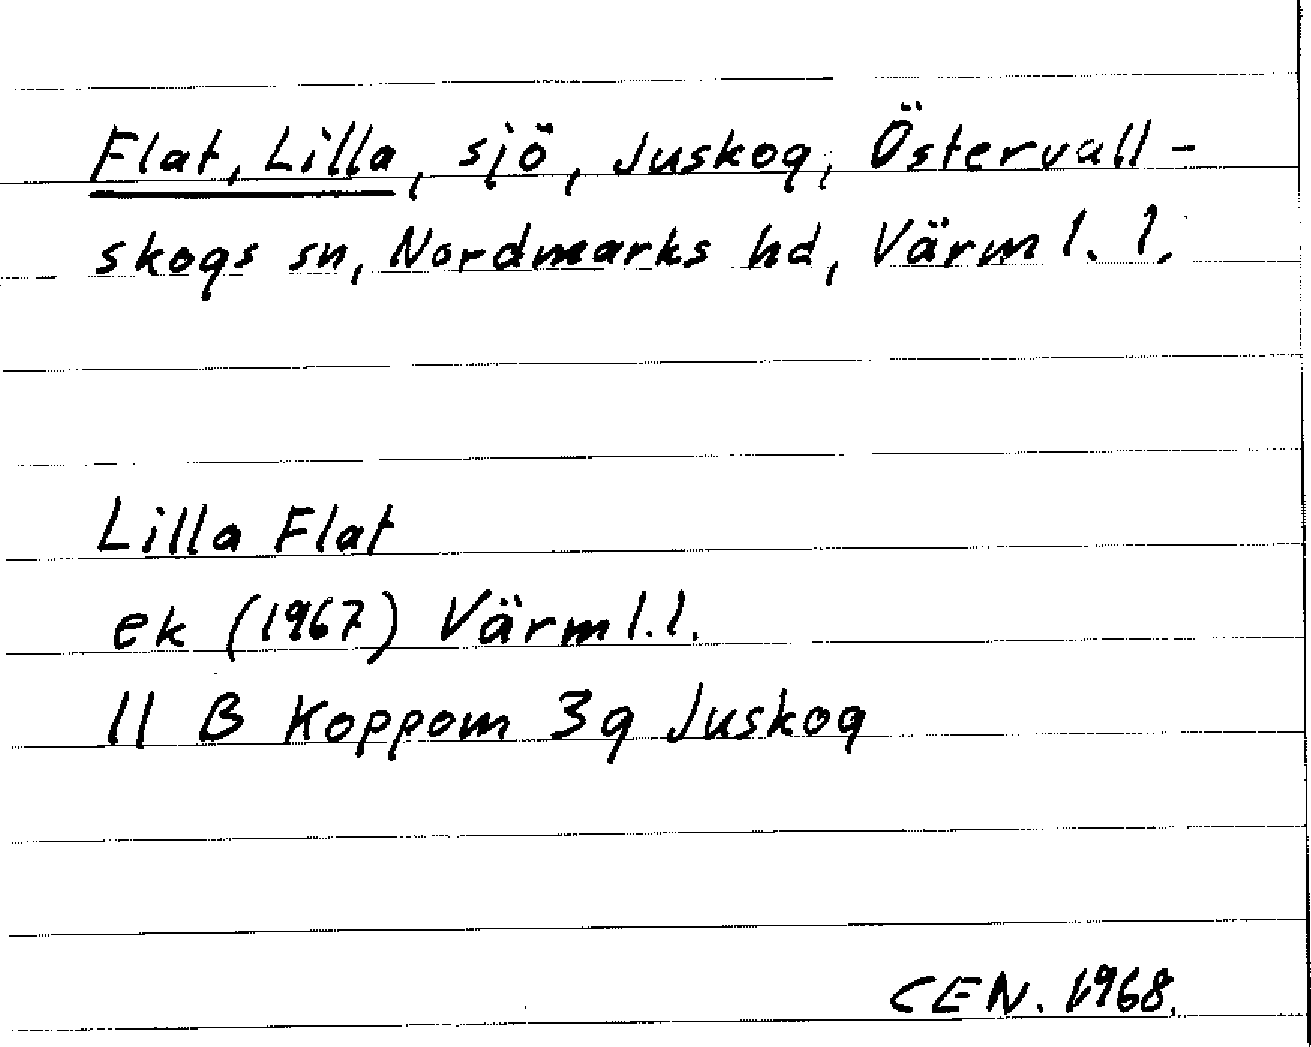 Flat, Lilla, sjö, Juskog, Östervall-
skogs sn, Nordmarks hd, Värml. l.
Lilla Flat
ek (1967) Värml.l.
11 B Koppom 3g Juskog
CEN. 1968.